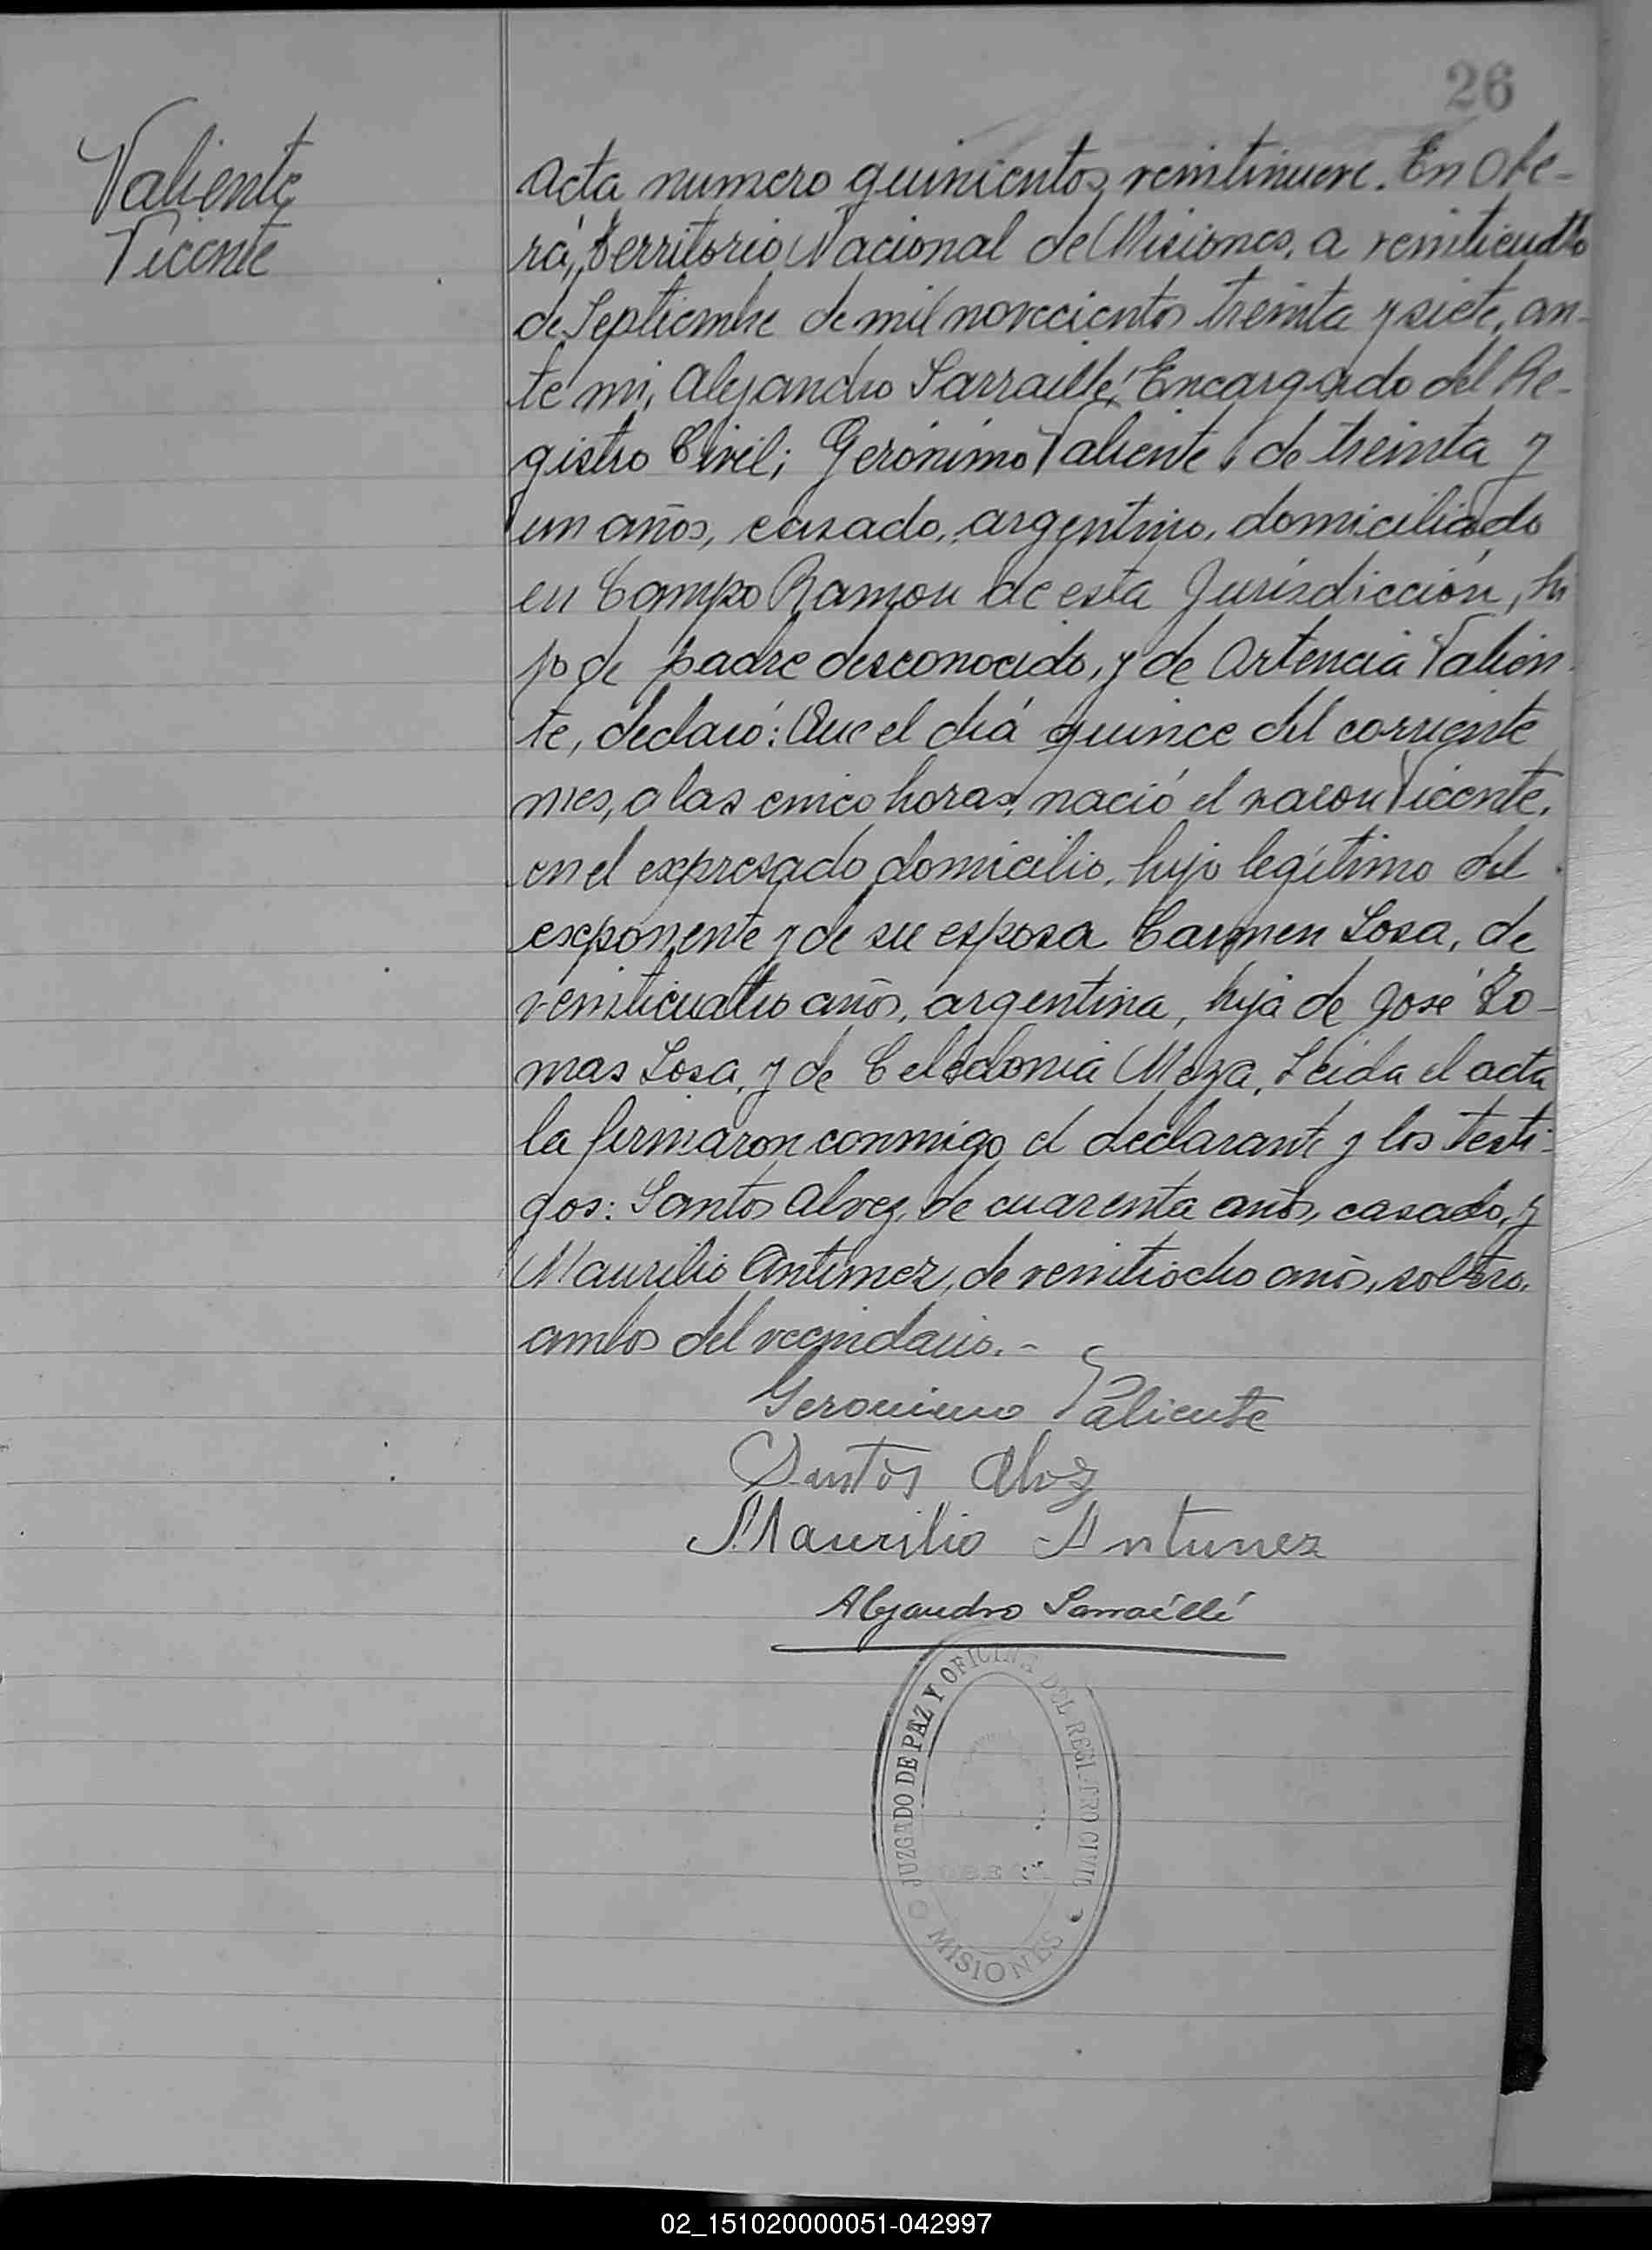 26
Valiente
Vicente
Acta numero quinientos veintinueve. En Obe-
rá, Territorio Nacional de Misiones, a veinticuatro
de Septiembre de mil novecientos treinta y siete, an-
te mi, Alejandro Sarraillé, Encargado del Re-
gistro Civil; Gerónimo Valiente, de treinta y
un años, casado, argentino, domiciliado
en Campo Ramon de esta Jurisdicción, hi
jo de padre desconocido, y de Artencia Valien-
te, declaró: Que el diá quince del corriente
mes, a las cinco horas, nació el varon Vicente,
en el expresado domicilio, hijo legítimo del
exponente y de su esposa Carmen Sosa, de
veinticuatro años, argentina, hija de José To-
mas Sosa, y de Celedonia Meza. Leida el acta
la firmaron conmigo el declarante y los testi-
gos: Santos Alvez, de cuarenta años, casado, y
Maurilio Antunez, de veintiocho años, soltero,
ambos del vecindario.-
Geronimo Valiente
Santos Alvez
Maurilio Antunez
Alejandro Sarraillé
JUZGADO DE PAZ Y OFICINA DEL REGISTRO CIVIL
MISIONES
02_151020000051-042997